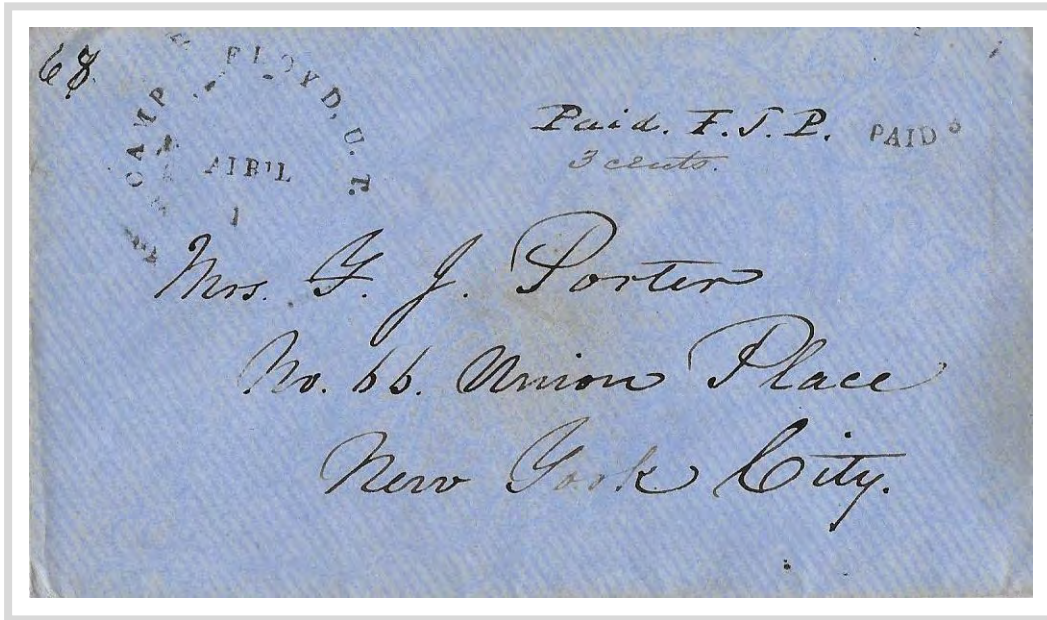 68
CAMP FLOYD, U. T.
APR'L
1
Paid. F. J. P.
3 cents.
PAID 3
Mrs. F. J. Porter
No. 66. Union Place
New York City.